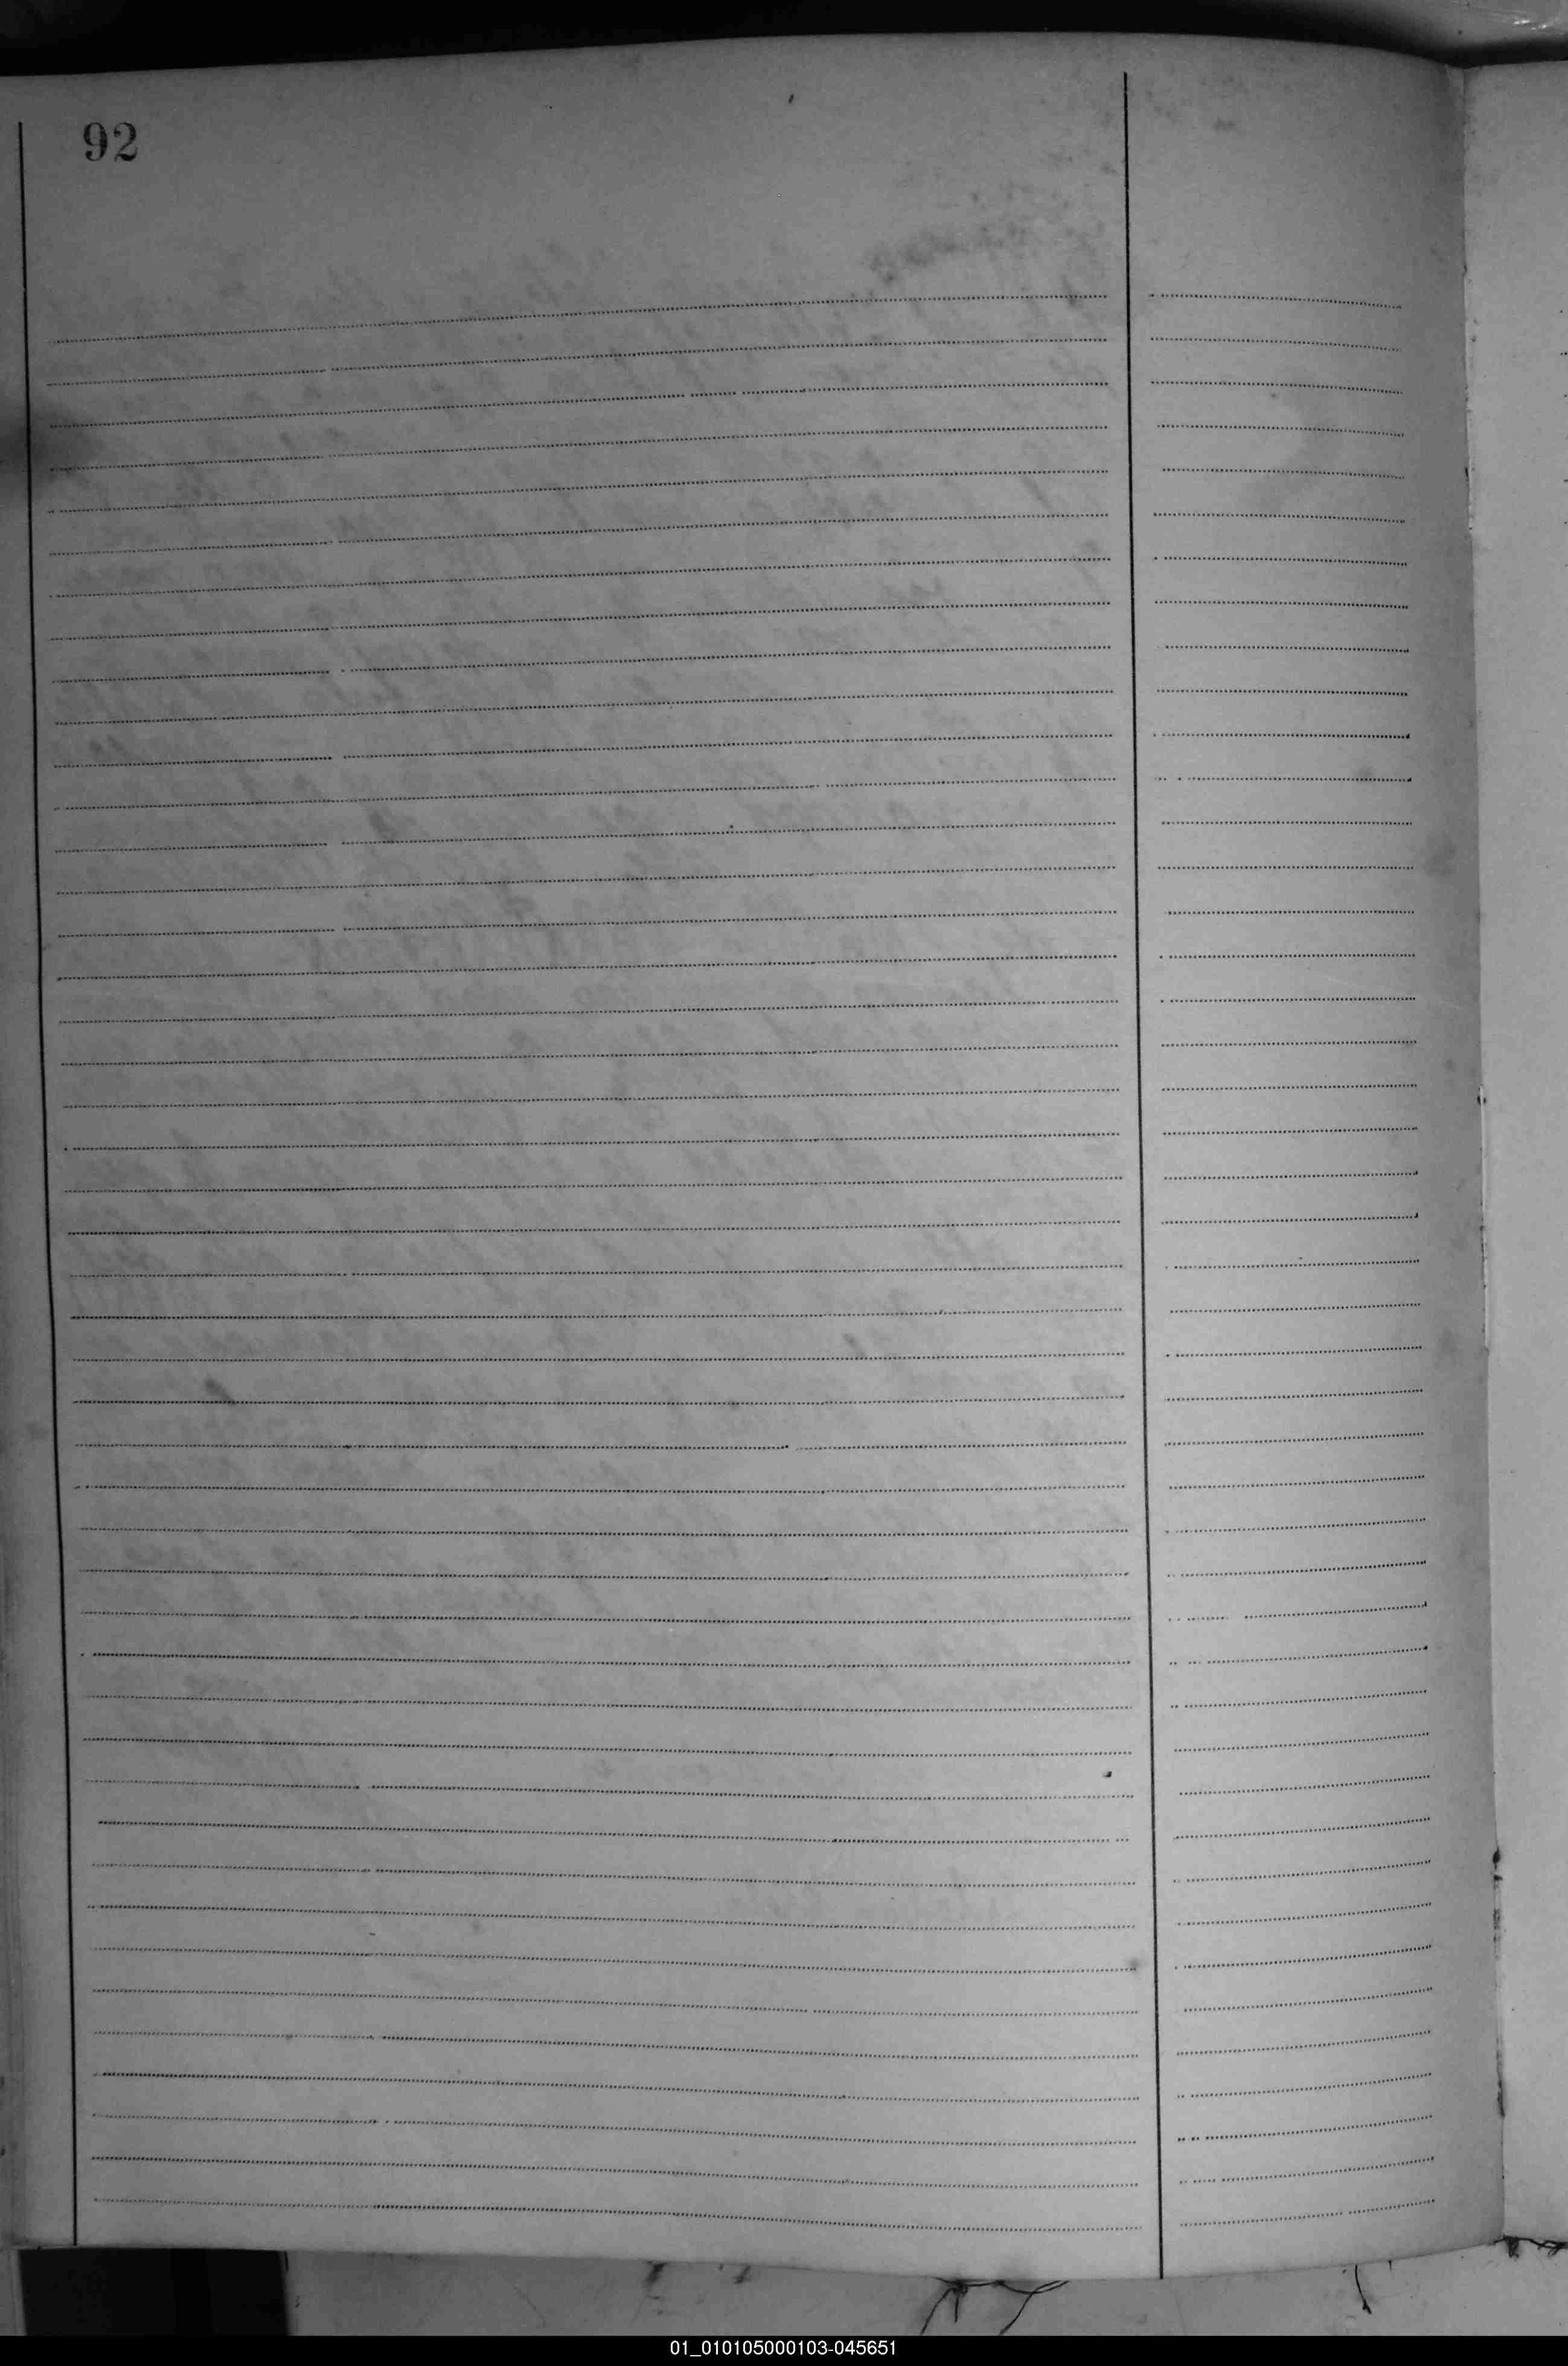 92
01_010105000103-045651